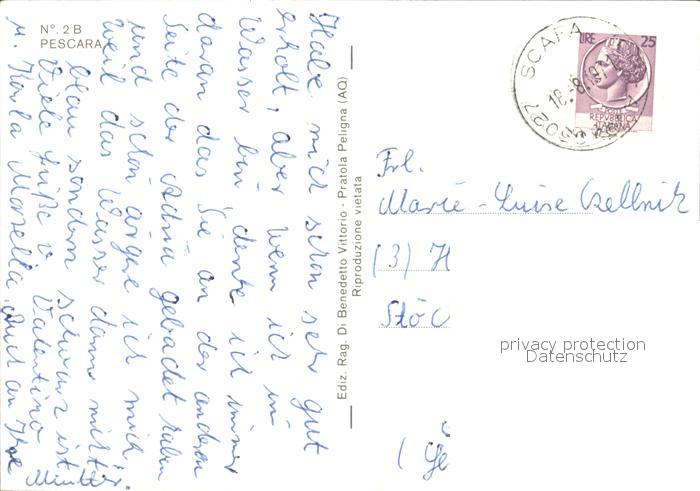 N°. 2 B
PESCARA
Habe mich schon sehr gut
erholt, aber wenn ich im
Wasser bin denke ich immer
daran das Sie an der anderen
Seite der Adria gebadet haben
und schon ärgere ich mich
weil das Wasser dann nicht
blau sondern schwarz ist.
Viele Grüße v. Valentino
u. Karla Marzella. Auch an Ihre
Ediz. Rag. Di Benedetto Vittorio - Pratola Peligna (AQ)
Riproduzione vietata
SCAFA
66027
LIRE 25
REPVBBLICA
ITALIANA
Frl.
Marie-Luise
(3) H
Stöc
privacy protection
Datenschutz
(Ge